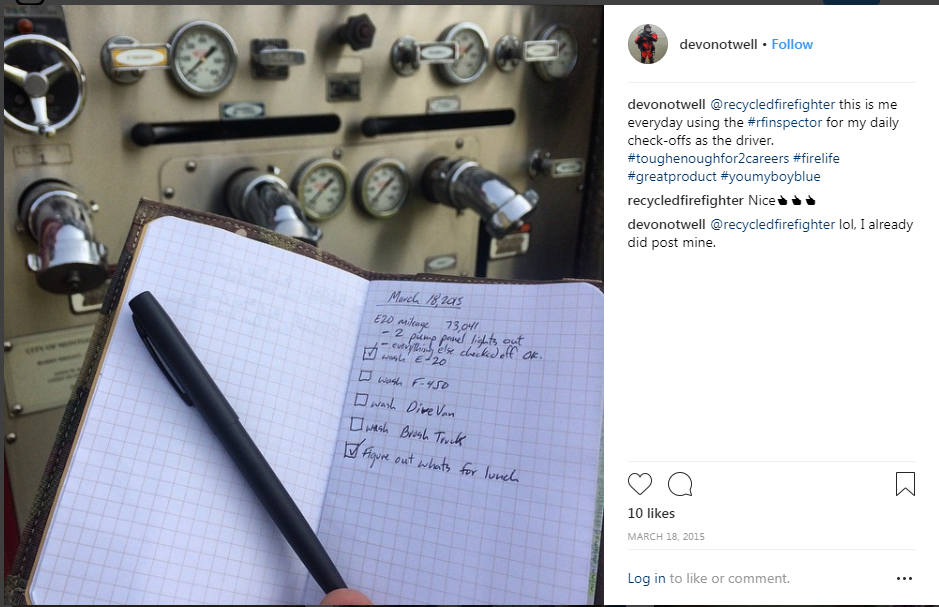 March 18, 2015
E20 mileage 73,041
- 2 pump panel lights out
- everything else checked off OK.
wash E-20
wash F-450
wash Dive Van
wash Brush Truck
Figure out whats for lunch
devonotwell • Follow
devonotwell @recycledfirefighter this is me
everyday using the #rfinspector for my daily
check-offs as the driver.
#toughenoughfor2careers #firelife
#greatproduct #youmyboyblue
recycledfirefighter Nice
devonotwell @recycledfirefighter lol, I already
did post mine.
10 likes
MARCH 18, 2015
Log in to like or comment.